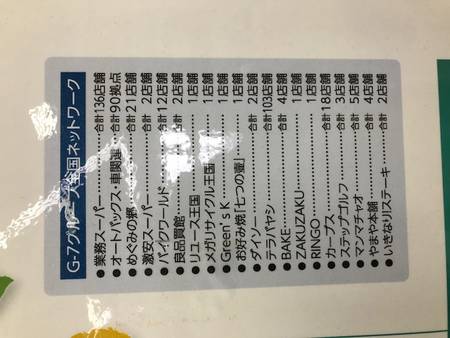 G-7グループ全国ネットワーク
●業務スーパー…………合計136店舗
●オートバックス・車関連…合計90拠点
●めぐみの郷……………合計21店舗
●激安スーパー…………合計2店舗
●バイクワールド………合計12店舗
●良品買館………………合計2店舗
●リユース王国…………1店舗
●メガリサイクル王国……1店舗
●Green's K………………1店舗
●お好み焼「七つの壷」……1店舗
●ダイソー………………合計2店舗
●テラバヤシ……………合計103店舗
●BAKE…………………合計4店舗
●ZAKUZAKU……………1店舗
●RINGO…………………1店舗
●カーブス………………合計18店舗
●ステップゴルフ………合計3店舗
●マンマチャオ…………合計5店舗
●やまや本舗……………合計4店舗
●いきなり!ステーキ……合計2店舗